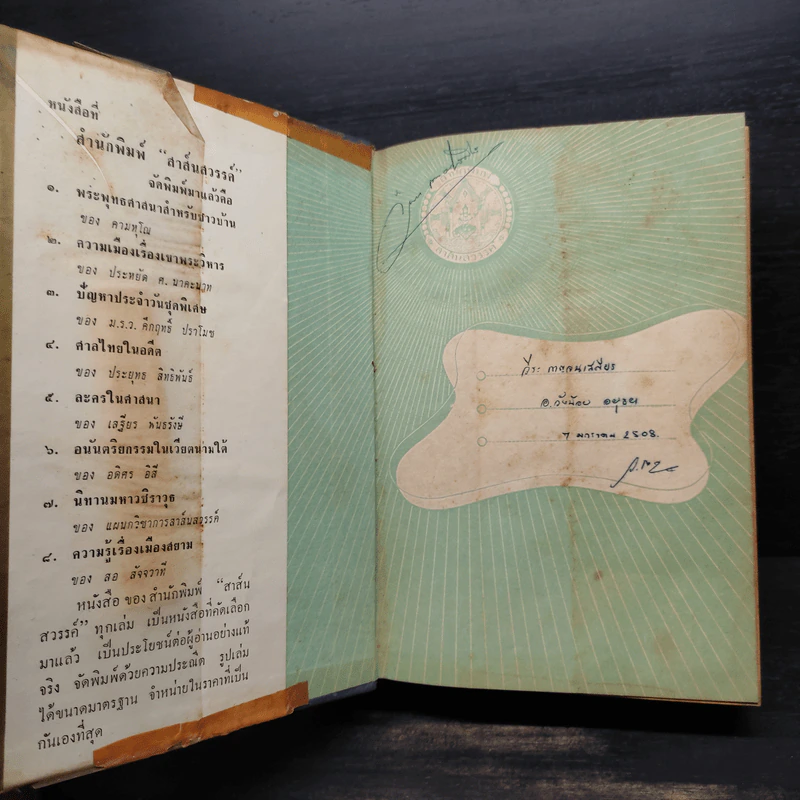 หนังสือที่
สำนักพิมพ์ “สาส์นสวรรค์”
จัดพิมพ์มาแล้วคือ
๑. พระพุทธศาสนาสำหรับชาวบ้าน
ของ คามหุโณ
๒. ความเมืองเรื่องเขาพระวิหาร
ของ ประหยัด ศ. นาคะนาท
๓. ปัญหาประจำวันชุดพิเศษ
ของ ม.ร.ว. คึกฤทธิ์ ปราโมช
๔. ศาลไทยในอดีต
ของ ประยุทธ สิทธิพันธ์
๕. ละครในศาสนา
ของ เสฐียร พันธรังษี
๖. อนันตริยกรรมในเวียตนามใต้
ของ อดิศร อิสี
๗. นิทานมหาวชิราวุธ
ของ แผนกวิชาการสาส์นสวรรค์
๘. ความรู้เรื่องเมืองสยาม
ของ สอ สัจจวาที
หนังสือ ของ สำนักพิมพ์ “สาส์น
สวรรค์” ทุกเล่ม เป็นหนังสือที่คัดเลือก
มาแล้ว เป็นประโยชน์ต่อผู้อ่านอย่างแท้
จริง จัดพิมพ์ด้วยความประณีต รูปเล่ม
ได้ขนาดมาตรฐาน จำหน่ายในราคาที่เป็น
กันเองที่สุด
วีระ
อ.วังน้อย อยุธยา
7 มกราคม 2508.